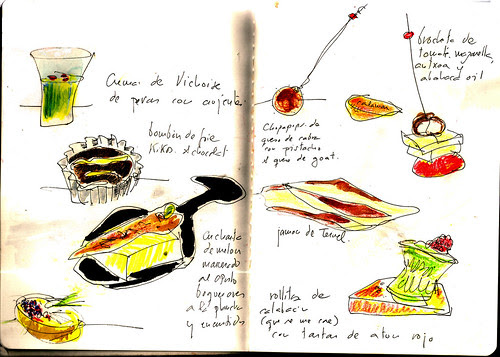 Crema de Vichoise
de peras con
bombon de foie
Kikos. chocolat
cucharita
de melon
marinado
al oporto
boquerones
a la plancha
y encurtidos
Chupachups de
queso de cabra
con pistacho
queso de goat.
calamar
brocheta de
tomate, mozzarella,
anxoa y
albahaca oil
jamon de Teruel.
rollitos de
calabacin
(que se me cae)
con tartar de atun rojo